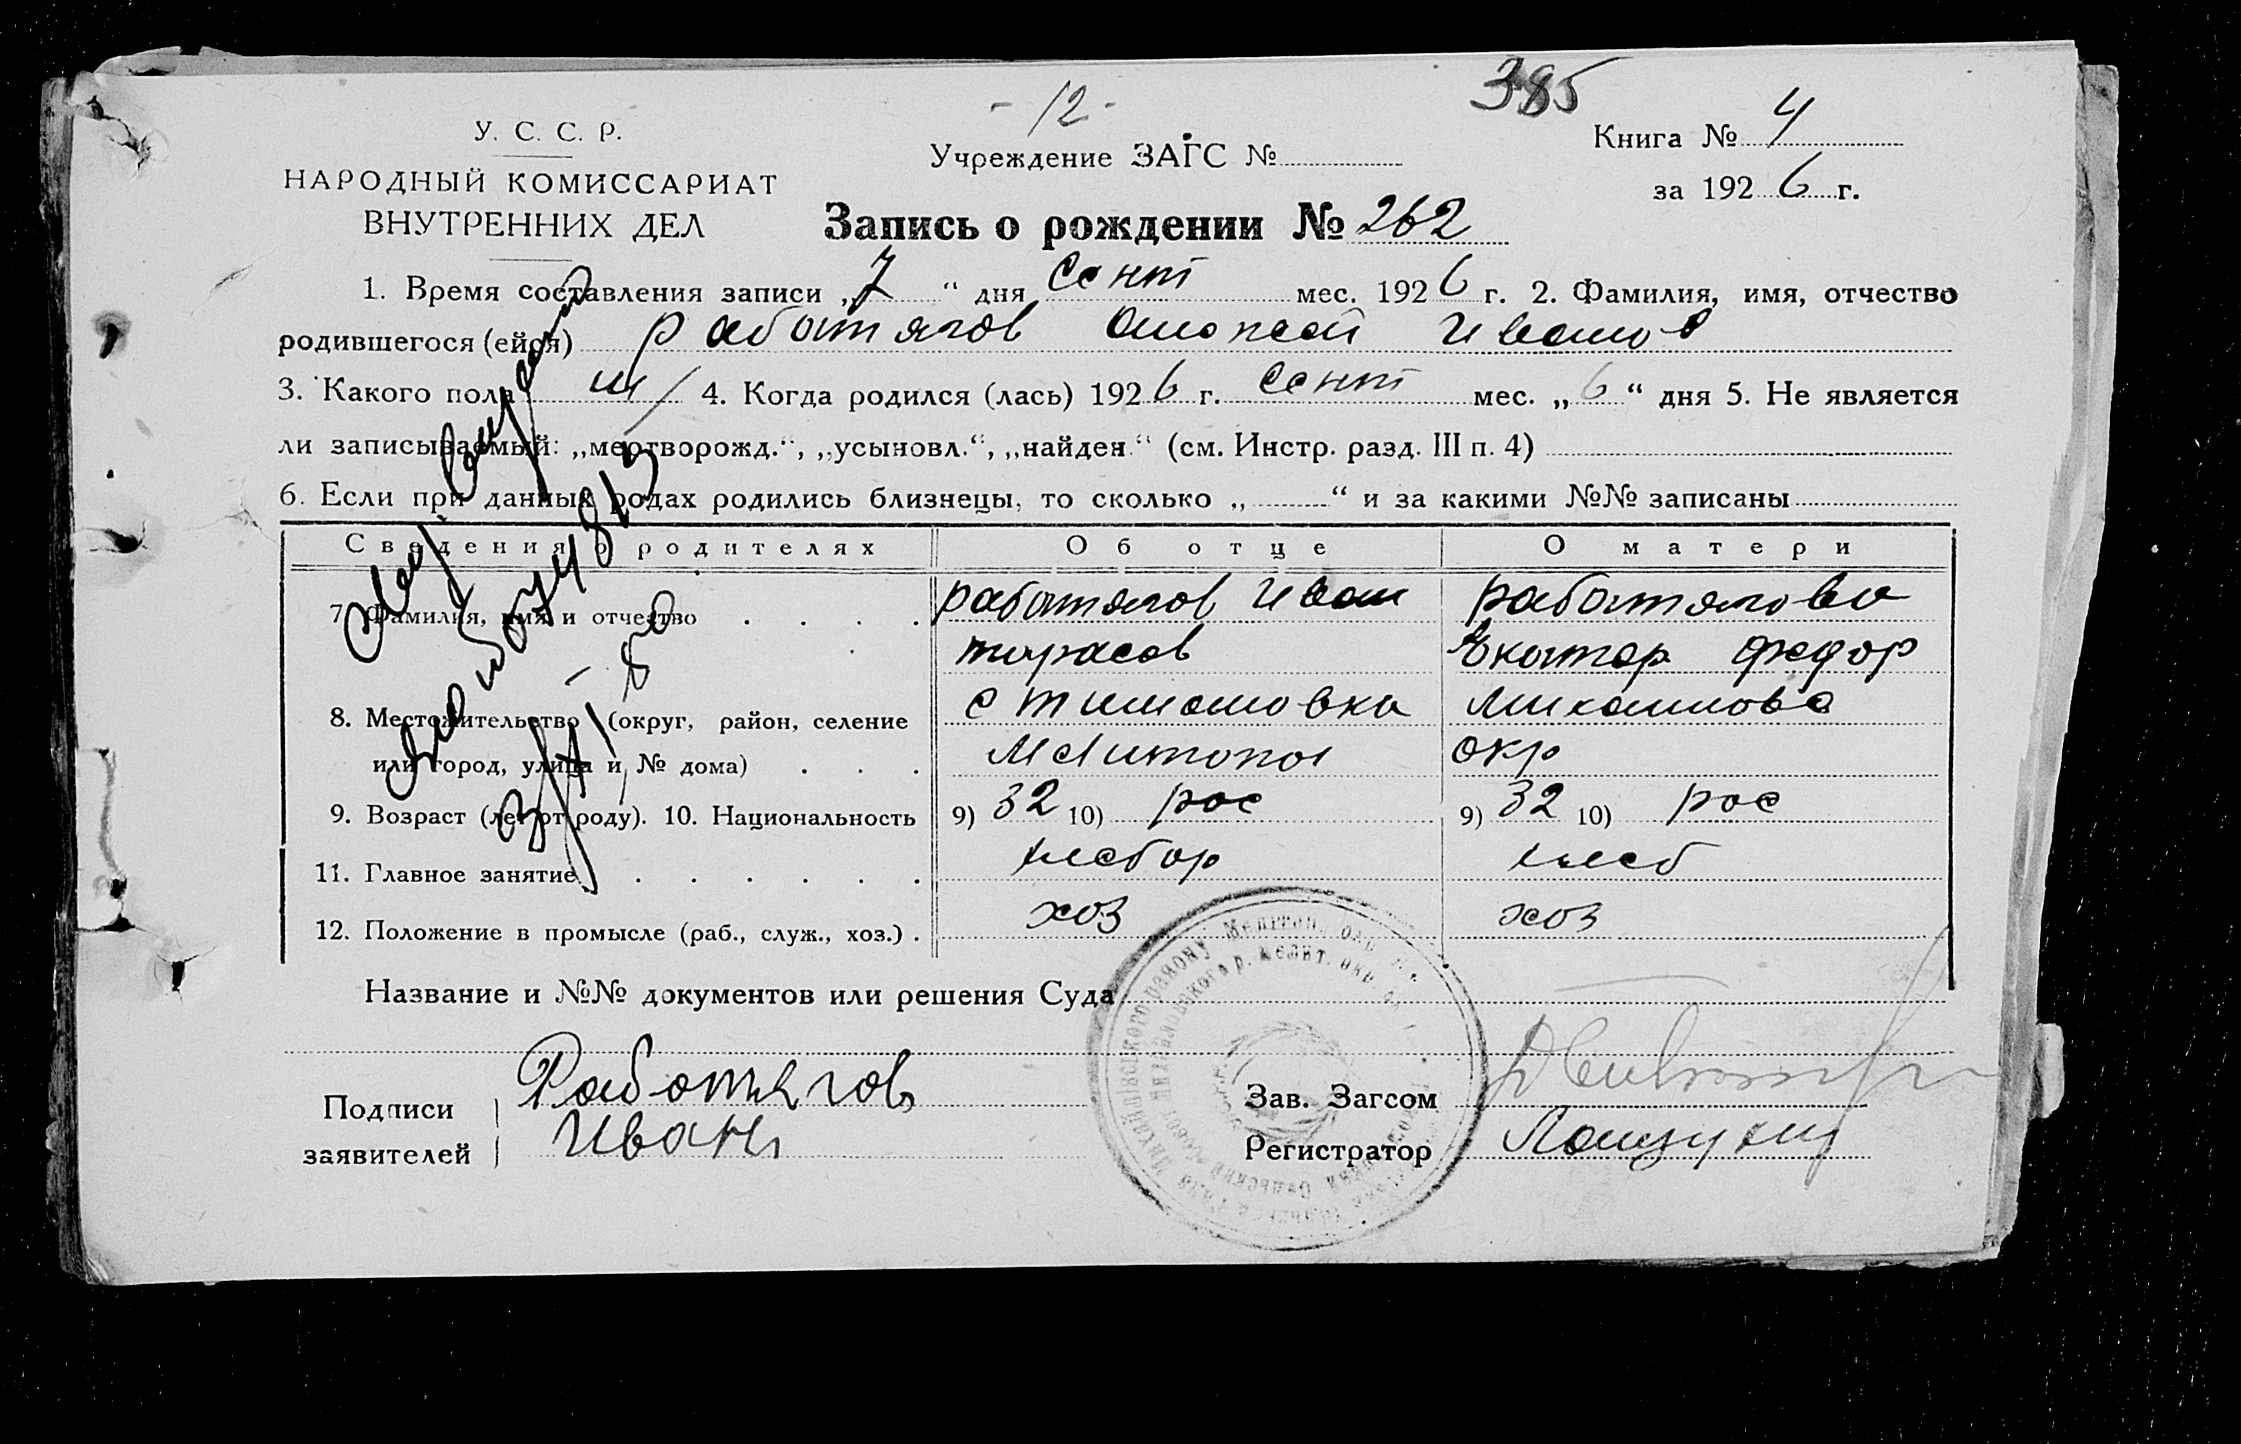 385
- 12 -
У. С. С. Р.
НАРОДНЫЙ КОМИССАРИАТ
ВНУТРЕННИХ ДЕЛ
Учреждение ЗАГС №
Книга № 4
за 1926 г.
Запись о рождении № 262
1. Время составления записи „7“ дня Сент мес. 1926 г. 2. Фамилия, имя, отчество
родившегося (ейся) Работягов Алексей Иванов
3. Какого пола м 4. Когда родился (лась) 1926 г. Сент мес. „6“ дня 5. Не является
ли записываемый: „мертворожд.“, „усыновл.“, „найден.“ (см. Инстр. разд. III п. 4)
6. Если при данных родах родились близнецы, то сколько „ “ и за какими №№ записаны
Сведения о родителях Об отце О матери
7. Фамилия, имя и отчество работягов Иван работягова
тарасов Екатер федор
8. Местожительство (округ, район, селение с тимашовка михайлова
или город, улица и № дома) Мелитопол окр
9. Возраст (лет от роду). 10. Национальность 9) 32 10) рос 9) 32 10) рос
11. Главное занятие хлебор хлеб
12. Положение в промысле (раб., служ., хоз.) хоз хоз
Название и №№ документов или решения Суда
Подписи Работягов Зав. Загсом
заявителей Иван Регистратор